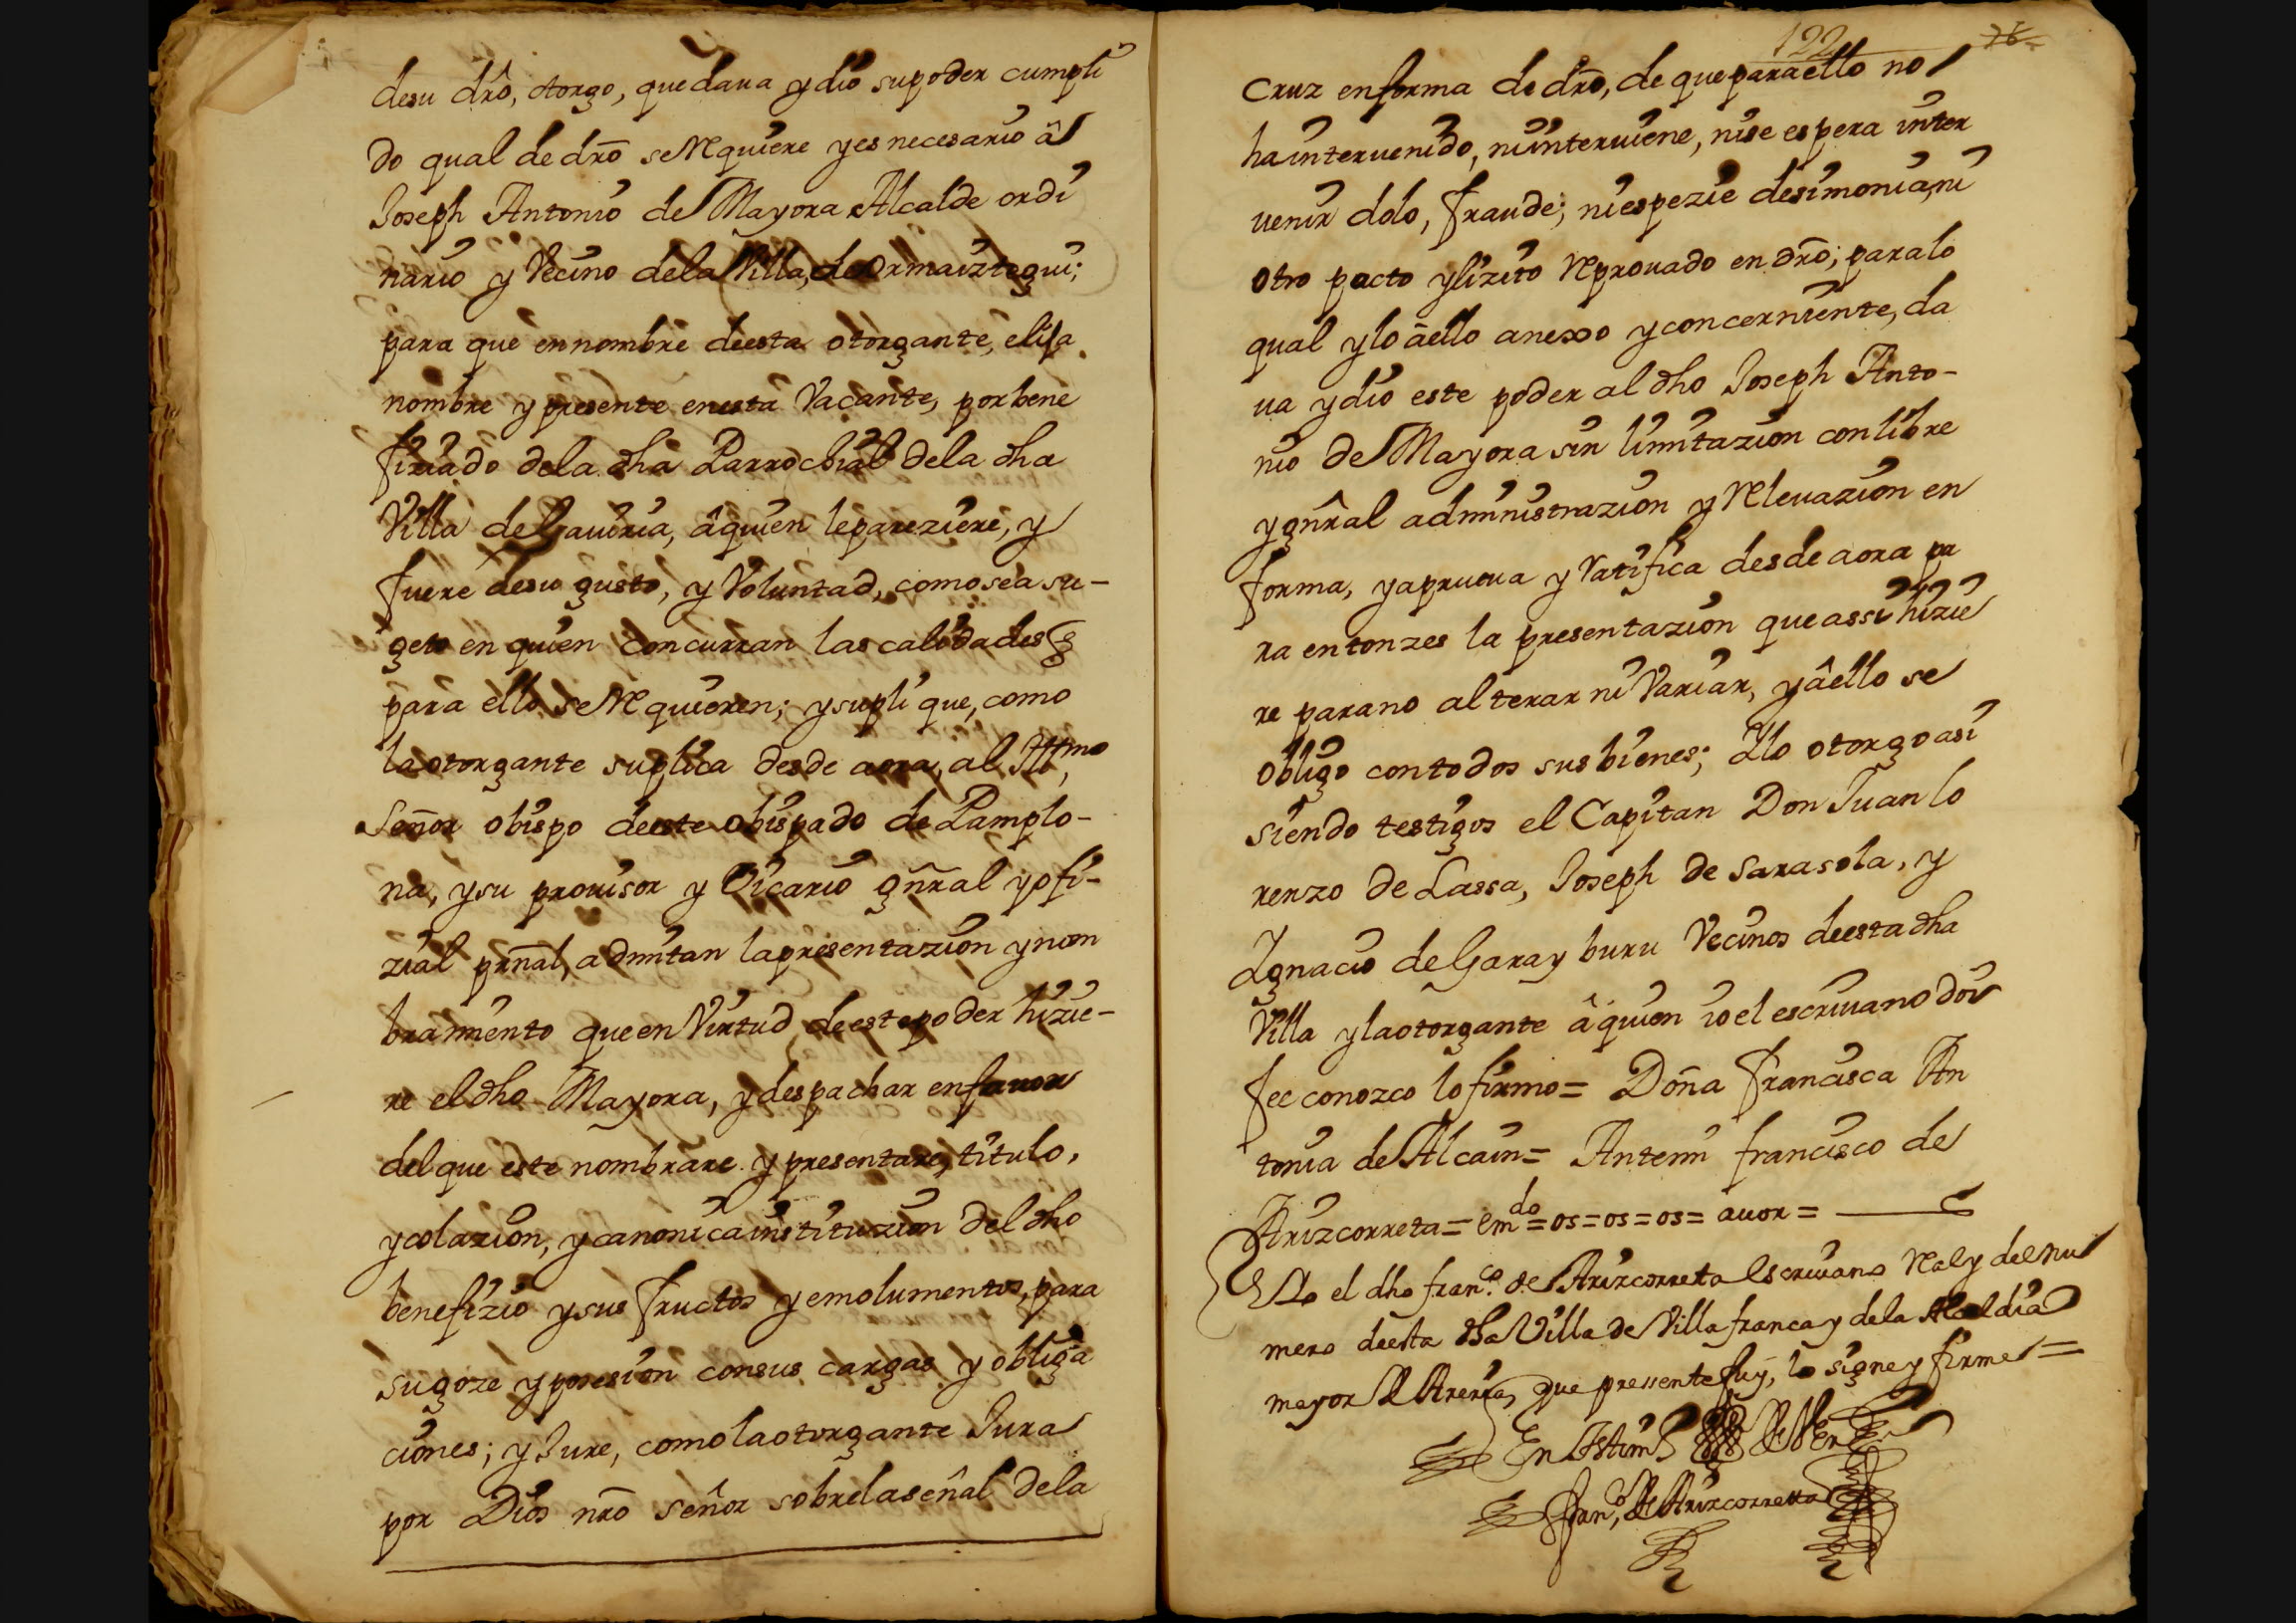 desu dr̃o, otorgo, que daua y dio su poder cumpli
do qual de dr̃o se requiere y es necesario â
Joseph Antonio de Mayora Alcalde ordi
nario y Vecino de la Villa de Ormaiztegui;
para que en nombre de esta otorgante, elija
nombre y presente en esta Vacante, por bene
fiziado de la dha Parrochial de la dha
Villa de Gauiria, â quien le pareziere, y
fuere de su gusto, y Voluntad, como sea su-
geto en quien concurran las calidades q
para ello se requieren; y suplique, como
la otorgante suplica desde aora, al Illmo,
Señor obispo de este obispado de Pamplo-
na, y su prouisor y Vicario gñral y ofi-
zial prñal, admitan la presentazion y nom
bramiento que en Virtud de este poder hizie-
re el dho Mayora, y despachar en fauor
del que este nombrare y presentare, titulo,
y colazion, y canonica instituzion del dho
benefizio y sus fructos y emolumentos, para
su goze y posesion con sus cargas y obliga
ciones; y Jure, como la otorgante Jura
por Dios nr̃o señor sobre la señal de la
122 76
Cruz en forma de dr̃o, de que para ello no
ha interuenido, ni interuiene, ni se espera inter
uenir dolo, fraude; ni espezie de simonia, ni
otro pacto ylizito reprouado en dr̃o; para lo
qual y lo â ello anexo y concerniente, da
ua y dio este poder al dho Joseph Anto-
nio de Mayora sin limitazion con libre
y gñral administrazion y releuazion en
forma, y aprueua y ratifica desde aora pa
ra entonzes la presentazion que assi hizie
re para no alterar ni Variar, y â ello se
obligo con todos sus bienes; Y lo otorgo asi
siendo testigos el Capitan Don Juan lo
renzo de Lassa, Joseph de Sarasola, y
Ygnacio de Garayburu Vecinos de esta dha
Villa y la otorgante â quien io el escriuano doi
fee conozco lo firmo = Doña Francisca An
tonia de Alcain = Antemi francisco de
Arizcorreta = emdo = os = os = os = auor =
Yo el dho franco de Arizcorreta Escriuano Real y del nu
mero de esta dha Villa de Villafranca y de la Alcaldia
mayor de Areria, que pressente fuy, lo signe y firme =
En testimo de Ver
franco de Arizcorreta